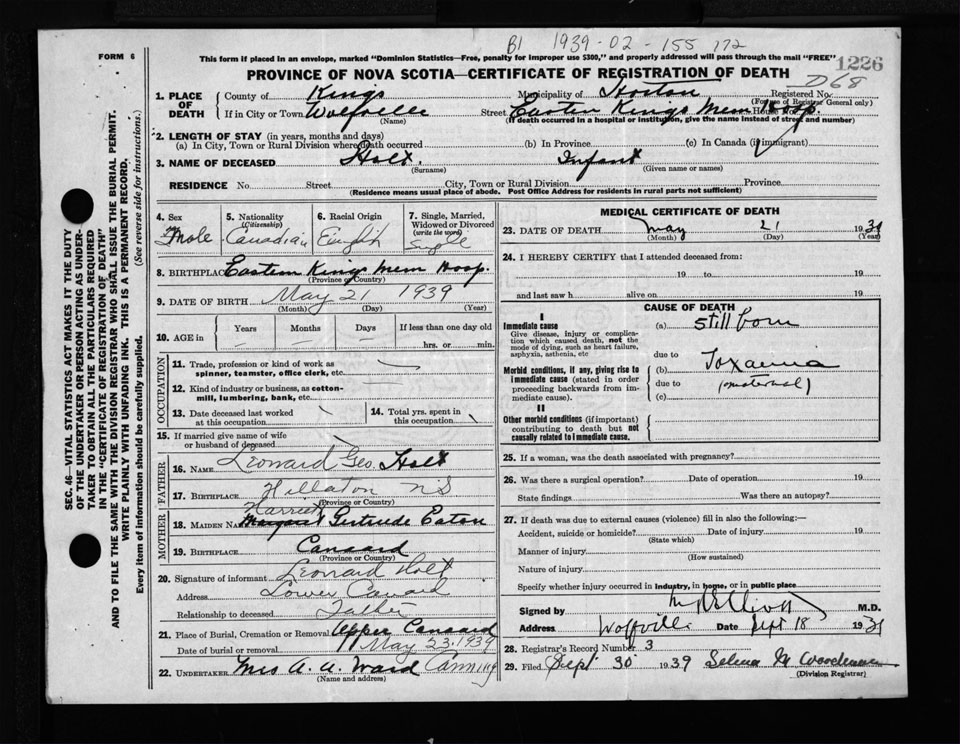 B1 1939-02-155 172
This form if placed in an envelope, marked "Dominion Statistics—Free, penalty for improper use $300," and properly addressed will pass through the mail "FREE"
1226
FORM 6
PROVINCE OF NOVA SCOTIA—CERTIFICATE OF REGISTRATION OF DEATH
D68
1. PLACE OF DEATH
County of Kings Municipality of Horton Registered No.
(For use of Registrar General only)
If in City or Town Wolfville Street Eastern Kings Mem Hosp. House
(Name) (If death occurred in a hospital or institution, give the name instead of street and number)
2. LENGTH OF STAY (in years, months and days)
(a) In City, Town or Rural Division where death occurred (b) In Province (c) In Canada (if immigrant)
3. NAME OF DECEASED Holt. Infant
(Surname) (Given name or names)
RESIDENCE No. Street City, Town or Rural Division Province
(Residence means usual place of abode. Post Office Address for residents in rural parts not sufficient)
4. Sex
5. Nationality (Citizenship)
6. Racial Origin
7. Single, Married, Widowed or Divorced (write the word)
Male Canadian English Single
8. BIRTHPLACE Eastern Kings Mem Hosp.
(Province or Country)
9. DATE OF BIRTH May 21 1939
(Month) (Day) (Year)
10. AGE in Years Months Days If less than one day old
hrs. or min.
OCCUPATION
11. Trade, profession or kind of work as spinner, teamster, office clerk, etc.
12. Kind of industry or business, as cotton-mill, lumbering, bank, etc.
13. Date deceased last worked at this occupation
14. Total yrs. spent in this occupation
15. If married give name of wife or husband of deceased
FATHER
16. NAME Leonard Geo. Holt
17. BIRTHPLACE Hillaton NS
(Province or Country)
MOTHER
Harriet
18. MAIDEN NAME Margaret Gertrude Eaton
19. BIRTHPLACE Canard
(Province or Country)
20. Signature of informant Leonard Holt
Address Lower Canard
Relationship to deceased Father
21. Place of Burial, Cremation or Removal Upper Canaard
Date of burial or removal May 23, 1939
22. UNDERTAKER Mrs A. A. Ward Canning
(Name and address)
MEDICAL CERTIFICATE OF DEATH
23. DATE OF DEATH May 21 1939
(Month) (Day) (Year)
24. I HEREBY CERTIFY that I attended deceased from:
19 to 19
and last saw h alive on 19
CAUSE OF DEATH
I
Immediate cause
Give disease, injury or complication which caused death, not the mode of dying, such as heart failure, asphyxia, asthenia, etc
(a) Still born
due to
Morbid conditions, if any, giving rise to immediate cause (stated in order proceeding backwards from immediate cause).
(b) Toxaemia
due to (maternal)
(c)
II
Other morbid conditions (if important) contributing to death but not causally related to immediate cause.
25. If a woman, was the death associated with pregnancy?
26. Was there a surgical operation? Date of operation 19
State findings Was there an autopsy?
27. If death was due to external causes (violence) fill in also the following:—
Accident, suicide or homicide? Date of injury 19
(State which)
Manner of injury
(How sustained)
Nature of injury
Specify whether injury occurred in industry, in home, or in public place
Signed by M R Elliott M.D.
Address Wolfville Date Sept 18 1939
28. Registrar's Record Number 3
29. Filed Sept 30 1939 Selena M Woodman
(Division Registrar)
SEC. 46—VITAL STATISTICS ACT MAKES IT THE DUTY
OF THE UNDERTAKER OR PERSON ACTING AS UNDER-
TAKER TO OBTAIN ALL THE PARTICULARS REQUIRED
IN THE "CERTIFICATE OF REGISTRATION OF DEATH"
AND TO FILE THE SAME WITH THE DIVISION REGISTRAR WHO SHALL ISSUE THE BURIAL PERMIT.
WRITE PLAINLY WITH UNFADING INK. THIS IS A PERMANENT RECORD.
Every item of information should be carefully supplied. (See reverse side for instructions.)